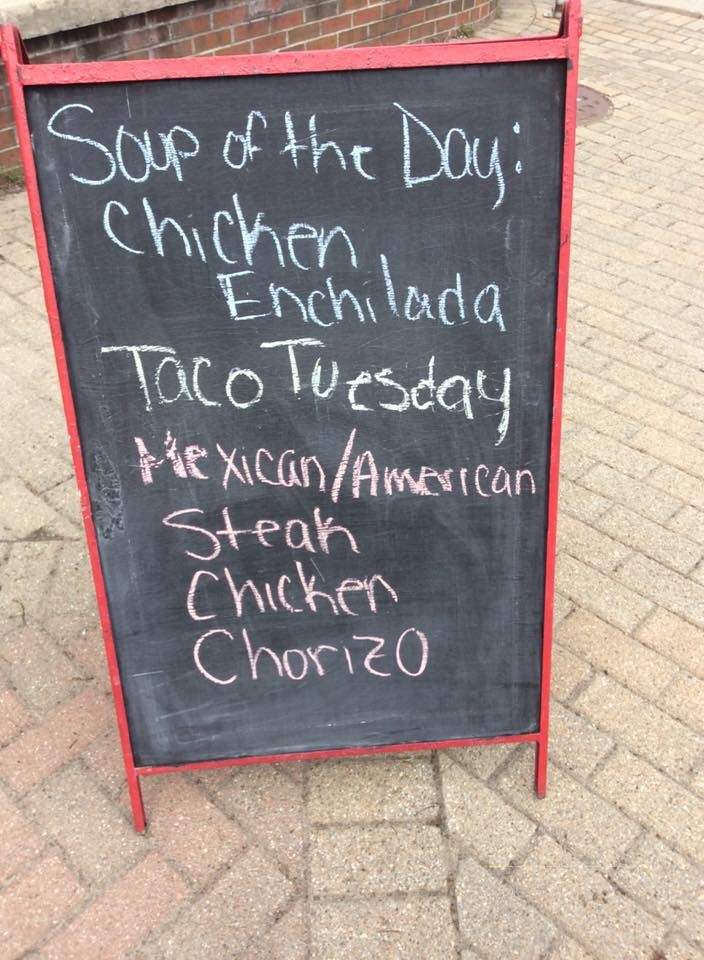 Soup of the Day:
Chicken
Enchilada
Taco Tuesday
Mexican/American
Steak
Chicken
Chorizo